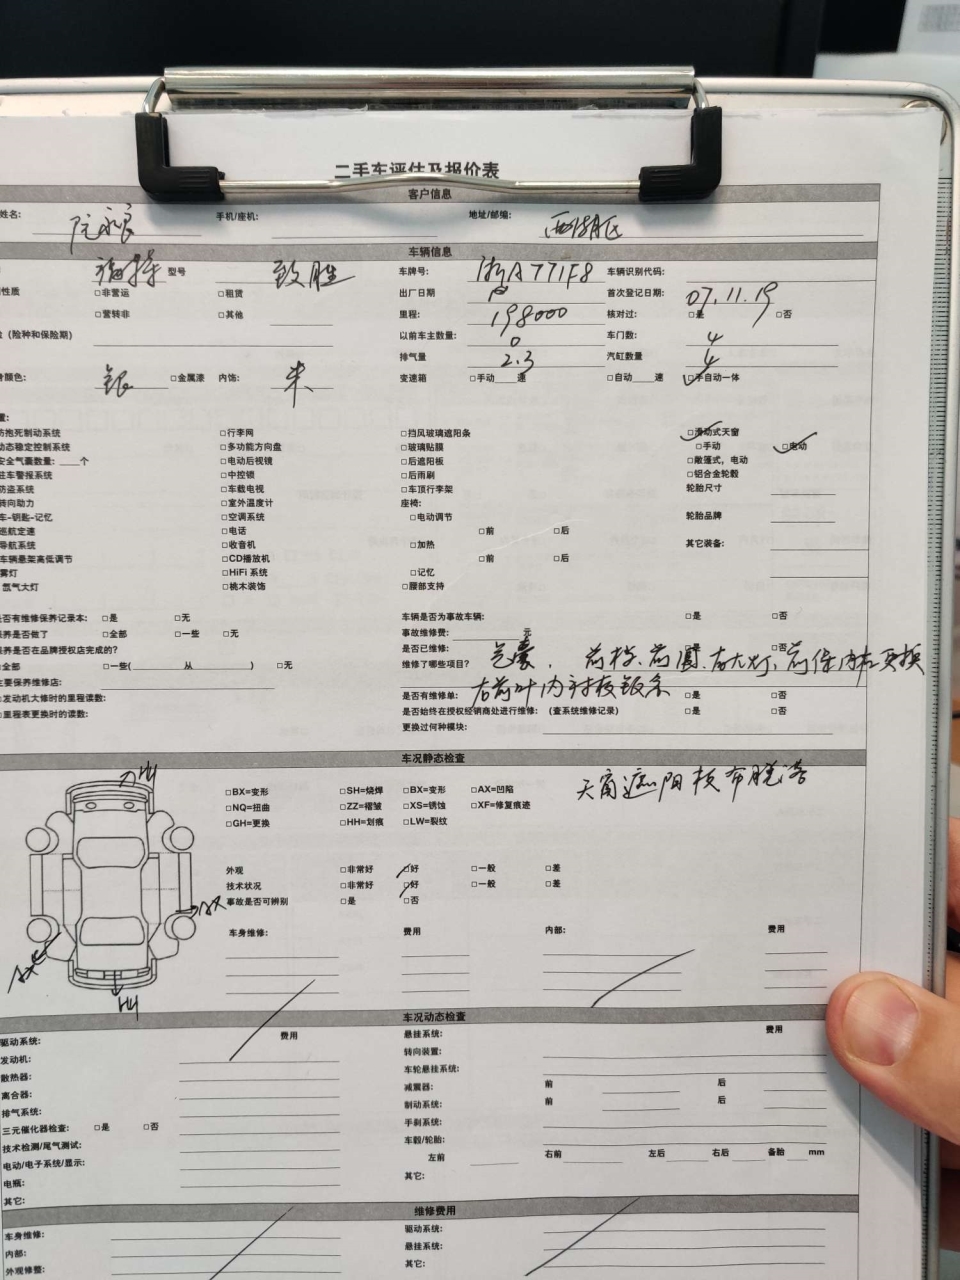 二手车评估及报价表
客户信息
姓名: 阮永良 手机/座机: 地址/邮编: 西湖区
车辆信息
福特 型号 致胜 车牌号: 浙A771F8 车辆识别代码:
性质 □非营运 □租赁 出厂日期 首次登记日期: 07.11.19
□营转非 □其他 里程: 198000 核对过: □是 □否
(险种和保险期) 以前车主数量: 0 车门数: 4
排气量 2.3 汽缸数量 4
身颜色: 银 □金属漆 内饰: 米 变速箱 □手动 速 □自动 速 □手自动一体
置:
防抱死制动系统 □行李网 □挡风玻璃遮阳条 □滑动式天窗
动态稳定控制系统 □多功能方向盘 □玻璃贴膜 □手动 □电动
安全气囊数量: 个 □电动后视镜 □后遮阳板 □敞篷式,电动
驻车警报系统 □中控锁 □后雨刷 □铝合金轮毂
防盗系统 □车载电视 □车顶行李架 轮胎尺寸
转向助力 □室外温度计 座椅:
车-钥匙-记忆 □空调系统 □电动调节 轮胎品牌
巡航定速 □电话 □前 □后
导航系统 □收音机 □加热 其它装备:
车辆悬架高低调节 □CD播放机 □前 □后
雾灯 □HiFi 系统 □记忆
氙气大灯 □桃木装饰 □腰部支持
是否有维修保养记录本: □是 □无 车辆是否为事故车辆: □是 □否
保养是否做了 □全部 □一些 □无 事故维修费: 元
保养是否在品牌授权店完成的? 是否已维修: □否
全部 □一些( 从 ) □无 维修了哪些项目? 气囊、前杠、前圆、右大灯、前保内杠更换
主要保养维修店: 右前叶内衬板钣金
□发动机大修时的里程读数: 是否有维修单: □是 □否
□里程表更换时的读数: 是否始终在授权经销商处进行维修: (查系统维修记录) □是 □否
更换过何种模块:
车况静态检查
天窗遮阳板布脱落
HH
□BX=变形 □SH=烧焊 □BX=变形 □AX=凹陷
□NQ=扭曲 □ZZ=褶皱 □XS=锈蚀 □XF=修复痕迹
□GH=更换 □HH=划痕 □LW=裂纹
外观 □非常好 □好 □一般 □差
技术状况 □非常好 □好 □一般 □差
AX 事故是否可辨别 □是 □否
车身维修: 费用 内部: 费用
AX
HH
车况动态检查
驱动系统: 费用 悬挂系统: 费用
发动机: 转向装置:
散热器: 车轮悬挂系统:
离合器: 减震器: 前 后
排气系统: 制动系统: 前 后
三元催化器检查: □是 □否 手刹系统:
技术检测/尾气测试: 车毂/轮胎:
电动/电子系统/显示: 左前 右前 左后 右后 备胎 mm
电瓶: 其它:
其它:
维修费用
车身维修: 驱动系统:
内部: 悬挂系统:
外观修整: 其它: